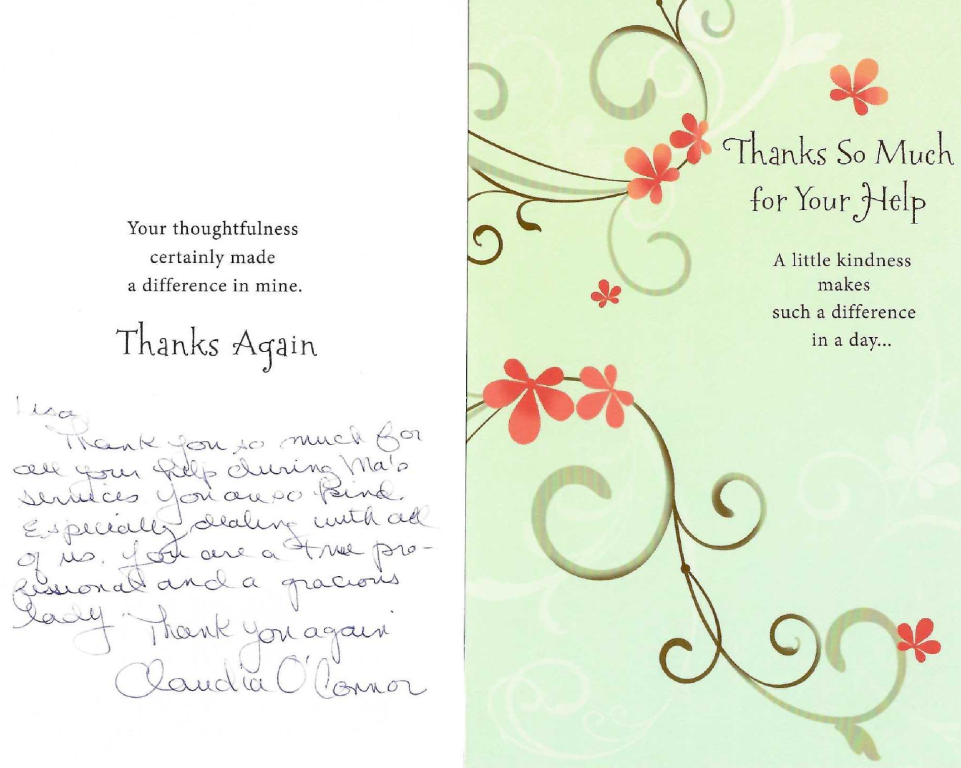 Your thoughtfulness
certainly made
a difference in mine.
Thanks Again
Lisa,
Thank you so much for
all your help during Ma's
services you are so kind.
Especially dealing with all
of us. You are a true pro-
fessional and a gracious
lady Thank you again
Claudia O'Connor
Thanks So Much
for Your Help
A little kindness
makes
such a difference
in a day...